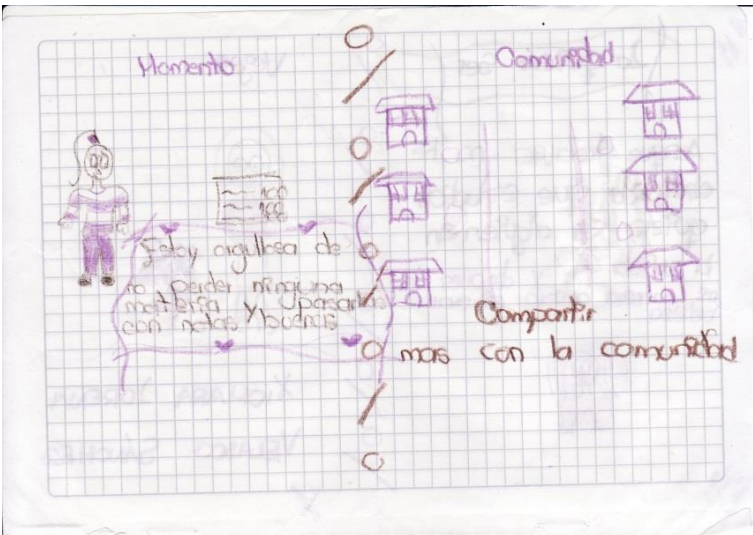 Momento
100
100
Estoy orgullosa de
no perder ninguna
matteria y pasarlas
con notas buenas
Comunidad
Compartir
mas con la comunidad